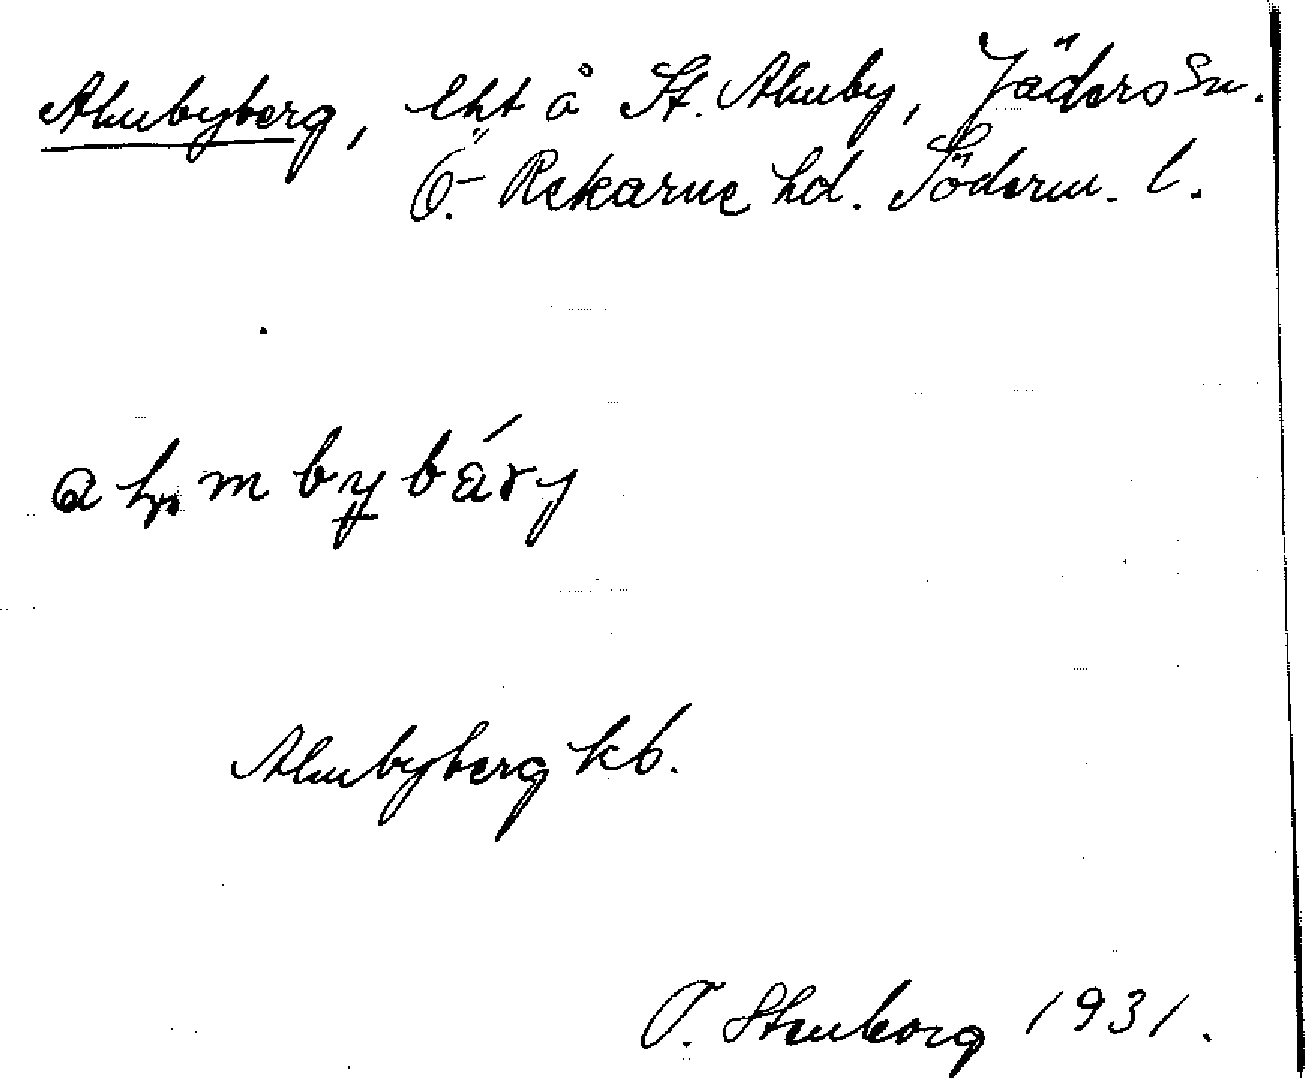 Almbyberg, lht å St. Almby, Jäders sn.
Ö. Rekarne hd. Söderm. l.
Almbyberg kb.
Stenborg 1931.